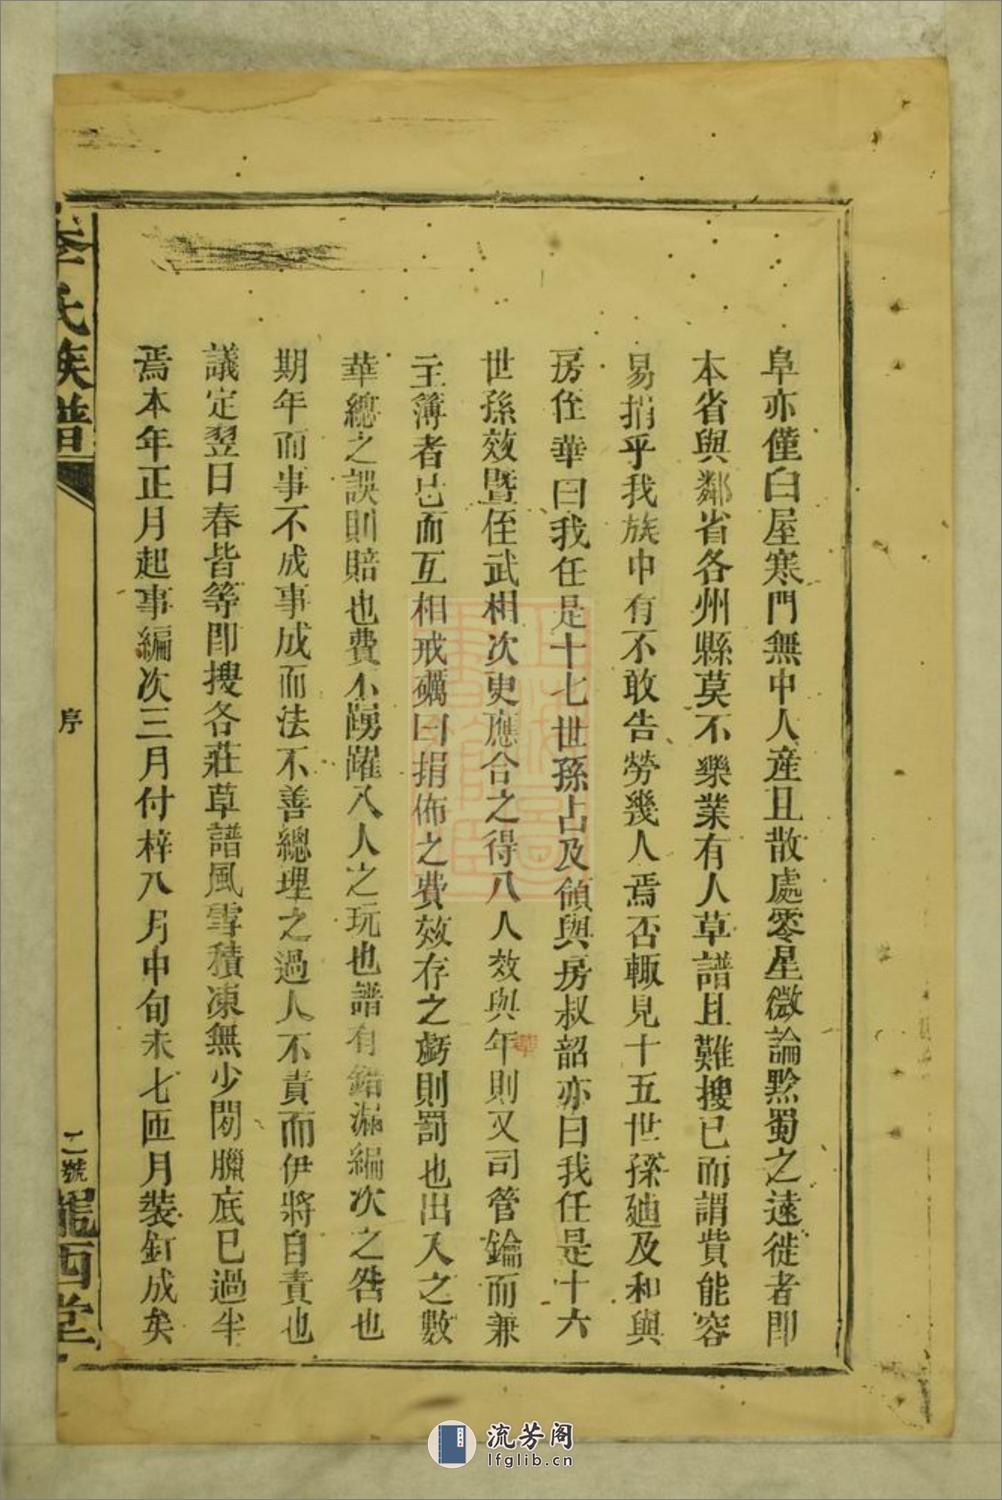 阜亦僅白屋寒門無中人產且散處零星微論黔蜀之遠徙者即
本省與鄰省各州縣莫不樂業有人草譜且難搜已而謂貲能容
易捐乎我族中有不敢告勞幾人焉否輒見十五世孫廸及和與
房侄華曰我任是十七世孫占及領與房叔韶亦曰我任是十六
世孫效暨侄武相次更應合之得八人效與年則又司管鑰而兼
主簿者已而互相戒礪曰捐佈之費效存之虧則罰也出入之數
華總之誤則賠也費不踴躍八人之玩也譜有錯漏編次之咎也
期年而事不成事成而法不善總理之過人不責而伊將自責也
議定翌日春皆等即搜各莊草譜風雪積凍無少閒臘底已過半
焉本年正月起事編次三月付梓八月中旬未七匝月裝釘成矣
李氏族譜
序
二號
隴西堂
華
流芳阁
lfglib.cn